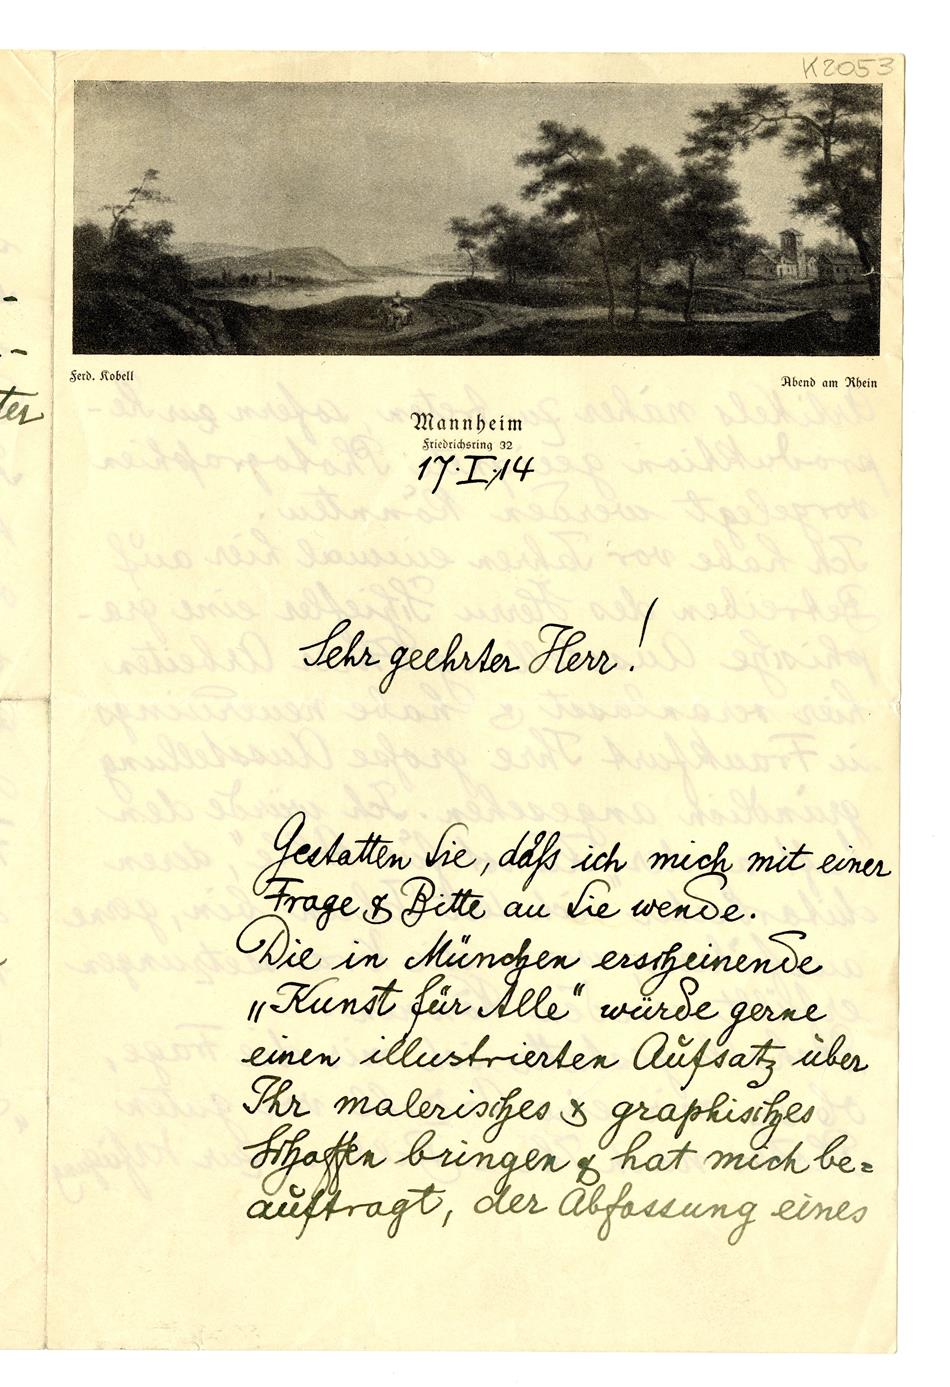 K2053
ter
Ferd. Kobell
Abend am Rhein
Mannheim
Friedrichsring 32
17.I.14
Sehr geehrter Herr!
Gestatten Sie, daß ich mich mit einer
Frage & Bitte an Sie wende.
Die in München erscheinende
„Kunst für Alle" würde gerne
einen illustrierten Aufsatz über
Ihr malerisches & graphisches
Schaffen bringen & hat mich be=
auftragt, der Abfassung eines